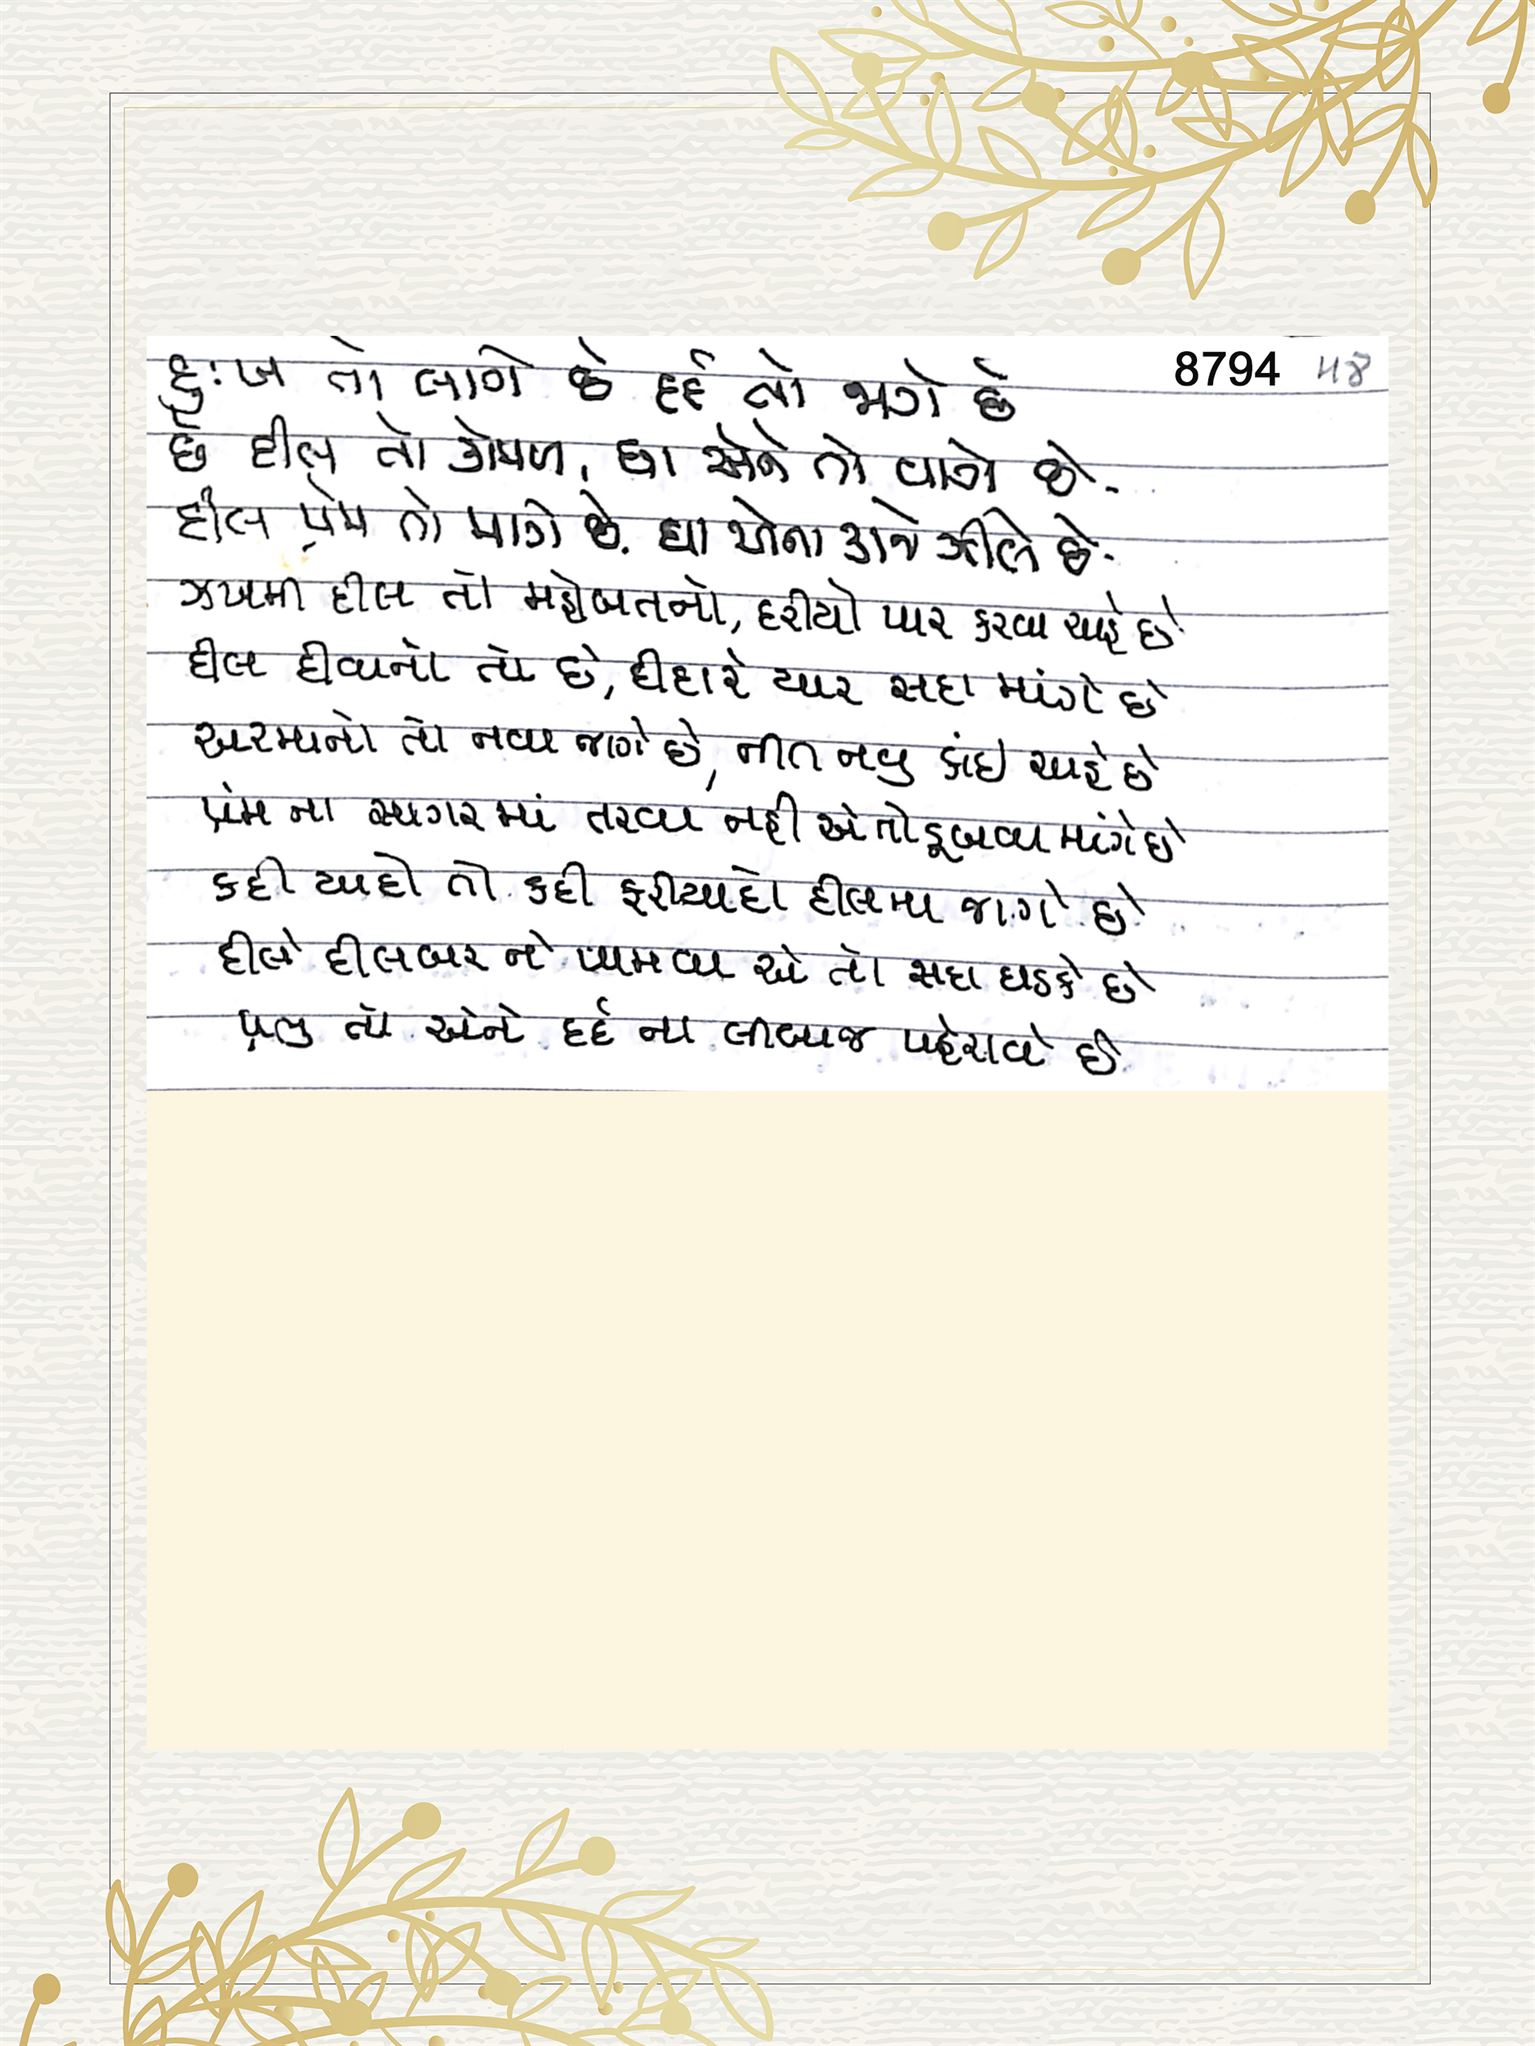 8794 ૫૪
દુઃખ તો લાગે છે દર્દ તો જાગે છે
છે દીલ તો કોમળ, ઘા એને તો વાગે છે.
દીલ પ્રેમ તો માગે છે. ઘા એના કાજે ઝીલે છે.
ઝખમી દીલ તો મહોબતનો, દરીયો પાર કરવા ચાહે છે
દીલ દીવાનો તો છે, દીદારે યાર સદા માંગે છે
અરમાનો તો નવા જાગે છે, નીત નવુ કાંઇ ચાહે છે
પ્રેમ ના સાગર માં તરવા નહી એ તો ડૂબવા માંગે છે
કદી યાદો તો કદી ફરીયાદો દીલમા જાગે છે
દીલે દીલબર ને પામવા એ તો સદા ધડકે છે
પ્રભુ તો એને દર્દ ના લીબાજ પહેરાવે છે